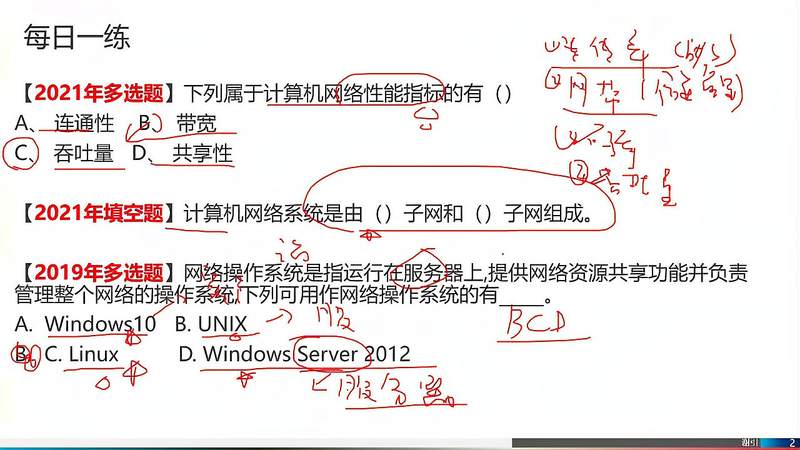 每日一练
【2021年多选题】下列属于计算机网络性能指标的有（）
A、 连通性 B、 带宽
C、 吞吐量 D、 共享性
【2021年填空题】计算机网络系统是由（）子网和（）子网组成。
【2019年多选题】网络操作系统是指运行在服务器上,提供网络资源共享功能并负责
管理整个网络的操作系统,下列可用作网络操作系统的有____。
A. Windows10 B. UNIX
BCD
C. Linux D. Windows Server 2012
服务器
2